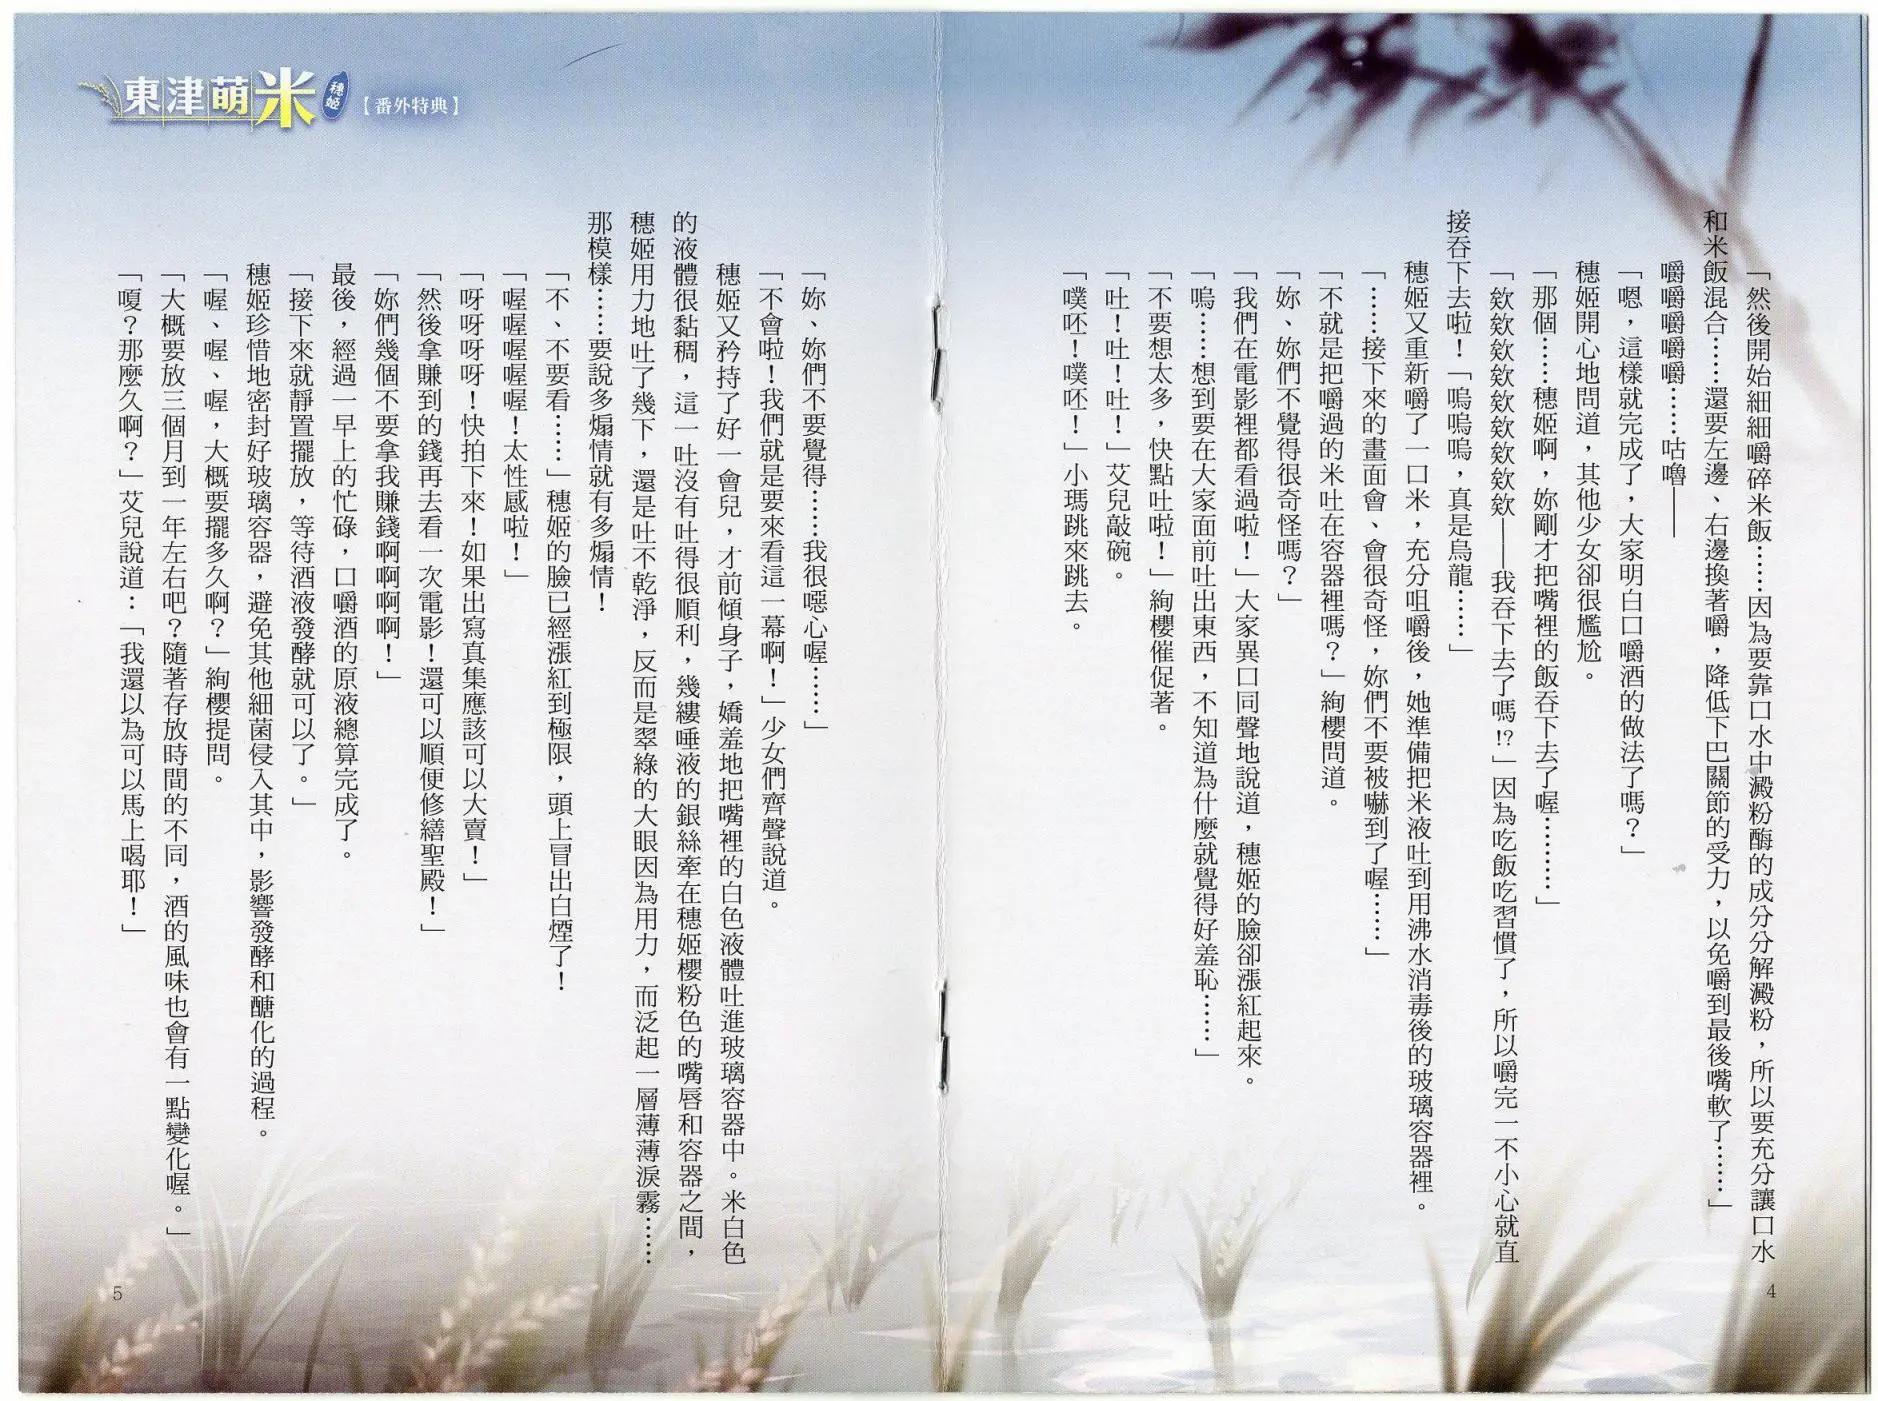 「然後開始細細嚼碎米飯……因為要靠口水中澱粉酶的成分分解澱粉，所以要充分讓口水
和米飯混合……還要左邊、右邊換著嚼，降低下巴關節的受力，以免嚼到最後嘴軟了……」
嚼嚼嚼嚼嚼……咕嚕——
「嗯，這樣就完成了，大家明白口嚼酒的做法了嗎？」
穗姬開心地問道，其他少女卻很尷尬。
「那個……穗姬啊，妳剛才把嘴裡的飯吞下去了喔…………」
「欸欸欸欸欸欸欸欸欸——我吞下去了嗎!?」因為吃飯吃習慣了，所以嚼完一不小心就直
接吞下去啦！「嗚嗚嗚，真是烏龍……」
穗姬又重新嚼了一口米，充分咀嚼後，她準備把米液吐到用沸水消毒後的玻璃容器裡。
「……接下來的畫面會、會很奇怪，妳們不要被嚇到了喔……」
「不就是把嚼過的米吐在容器裡嗎？」絢櫻問道。
「妳、妳們不覺得很奇怪嗎？」
「我們在電影裡都看過啦！」大家異口同聲地說道，穗姬的臉卻漲紅起來。
「嗚……想到要在大家面前吐出東西，不知道為什麼就覺得好羞恥……」
「不要想太多，快點吐啦！」絢櫻催促著。
「吐！吐！吐！」艾兒敲碗。
「噗呸！噗呸！」小瑪跳來跳去。
4
東津萌米 穗姬 【番外特典】
「妳、妳們不要覺得……我很噁心喔……」
「不會啦！我們就是要來看這一幕啊！」少女們齊聲說道。
穗姬又矜持了好一會兒，才前傾身子，嬌羞地把嘴裡的白色液體吐進玻璃容器中。米白色
的液體很黏稠，這一吐沒有吐得很順利，幾縷唾液的銀絲牽在穗姬櫻粉色的嘴唇和容器之間，
穗姬用力地吐了幾下，還是吐不乾淨，反而是翠綠的大眼因為用力，而泛起一層薄薄淚霧……
那模樣……要說多煽情就有多煽情！
「不、不要看……」穗姬的臉已經漲紅到極限，頭上冒出白煙了！
「喔喔喔喔喔！太性感啦！」
「呀呀呀呀！快拍下來！如果出寫真集應該可以大賣！」
「然後拿賺到的錢再去看一次電影！還可以順便修繕聖殿！」
「妳們幾個不要拿我賺錢啊啊啊啊啊！」
最後，經過一早上的忙碌，口嚼酒的原液總算完成了。
「接下來就靜置擺放，等待酒液發酵就可以了。」
穗姬珍惜地密封好玻璃容器，避免其他細菌侵入其中，影響發酵和醣化的過程。
「喔、喔、喔，大概要擺多久啊？」絢櫻提問。
「大概要放三個月到一年左右吧？隨著存放時間的不同，酒的風味也會有一點變化喔。」
「嗄？那麼久啊？」艾兒說道：「我還以為可以馬上喝耶！」
5